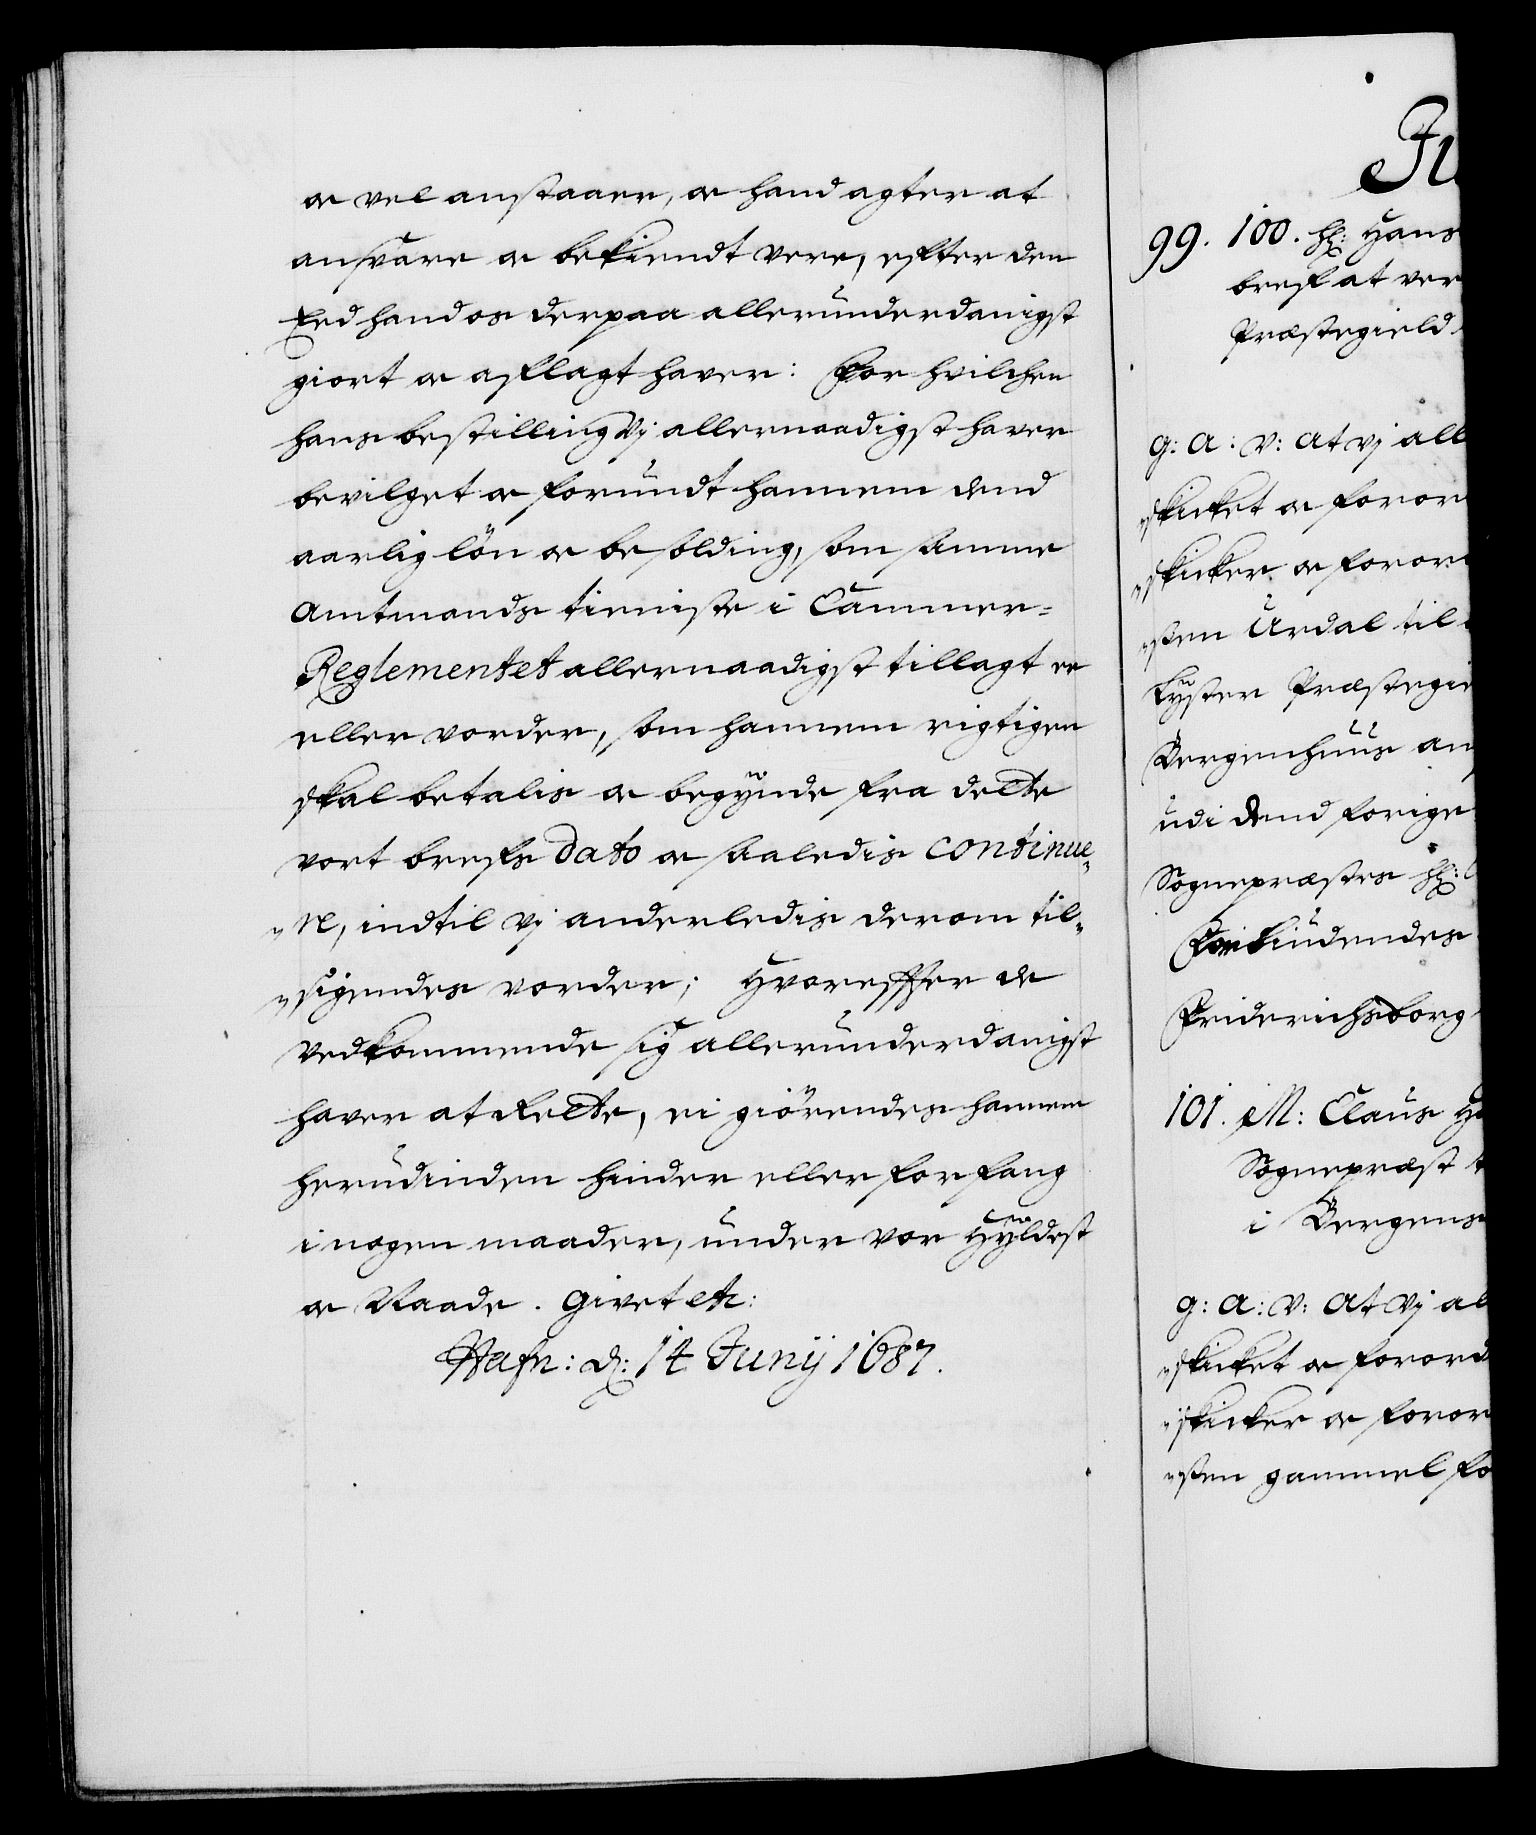 og vel anstaaer, og hand agter at
ansvare og bekiendt være, efter den
Eed hand os derpaa allerunderdanigst
giort og aflagt haver: For hvilchen
hans bestilling Vj allernaadigst haver
bevilget og forundt hannem dend
aarlig lön og besolding, som samme
Amtmands tieniste i Cammer=
Reglementet allernaadigst tillagt er
eller vorder, som hannem rigtigen
skal betalis og begynde fra dette
vort brefs Dato og saaledis continue„
„re, indtil Vj anderledis derom til„
„sigendes vorder; Hvorefter de
Vedkommende sig allerunderdanigst
haver at rette, ei giörendes hannem
herudinden hinder eller forfang
i nogen maader, under vor Hyldest
og Naade. Givet etc:
Hafn: d: 14 Junij 1687.
Ju
99. 100. Hr: Hans
bref at ver
Præstegield
G: A: V: At Vj all
„skicket og foror
„skicker og foror
„sten Urdal til
Lyster Præstegie
Bergenhuus am
udi dend forige
Sognepræstes Hr:
Forbiudendes
Friderichsborg
101. M: Claus H
Sognepræst t
i Bergens
G: A: V: At Vj al
„skicket og forord
„skicker og foror
„sten gammel fo